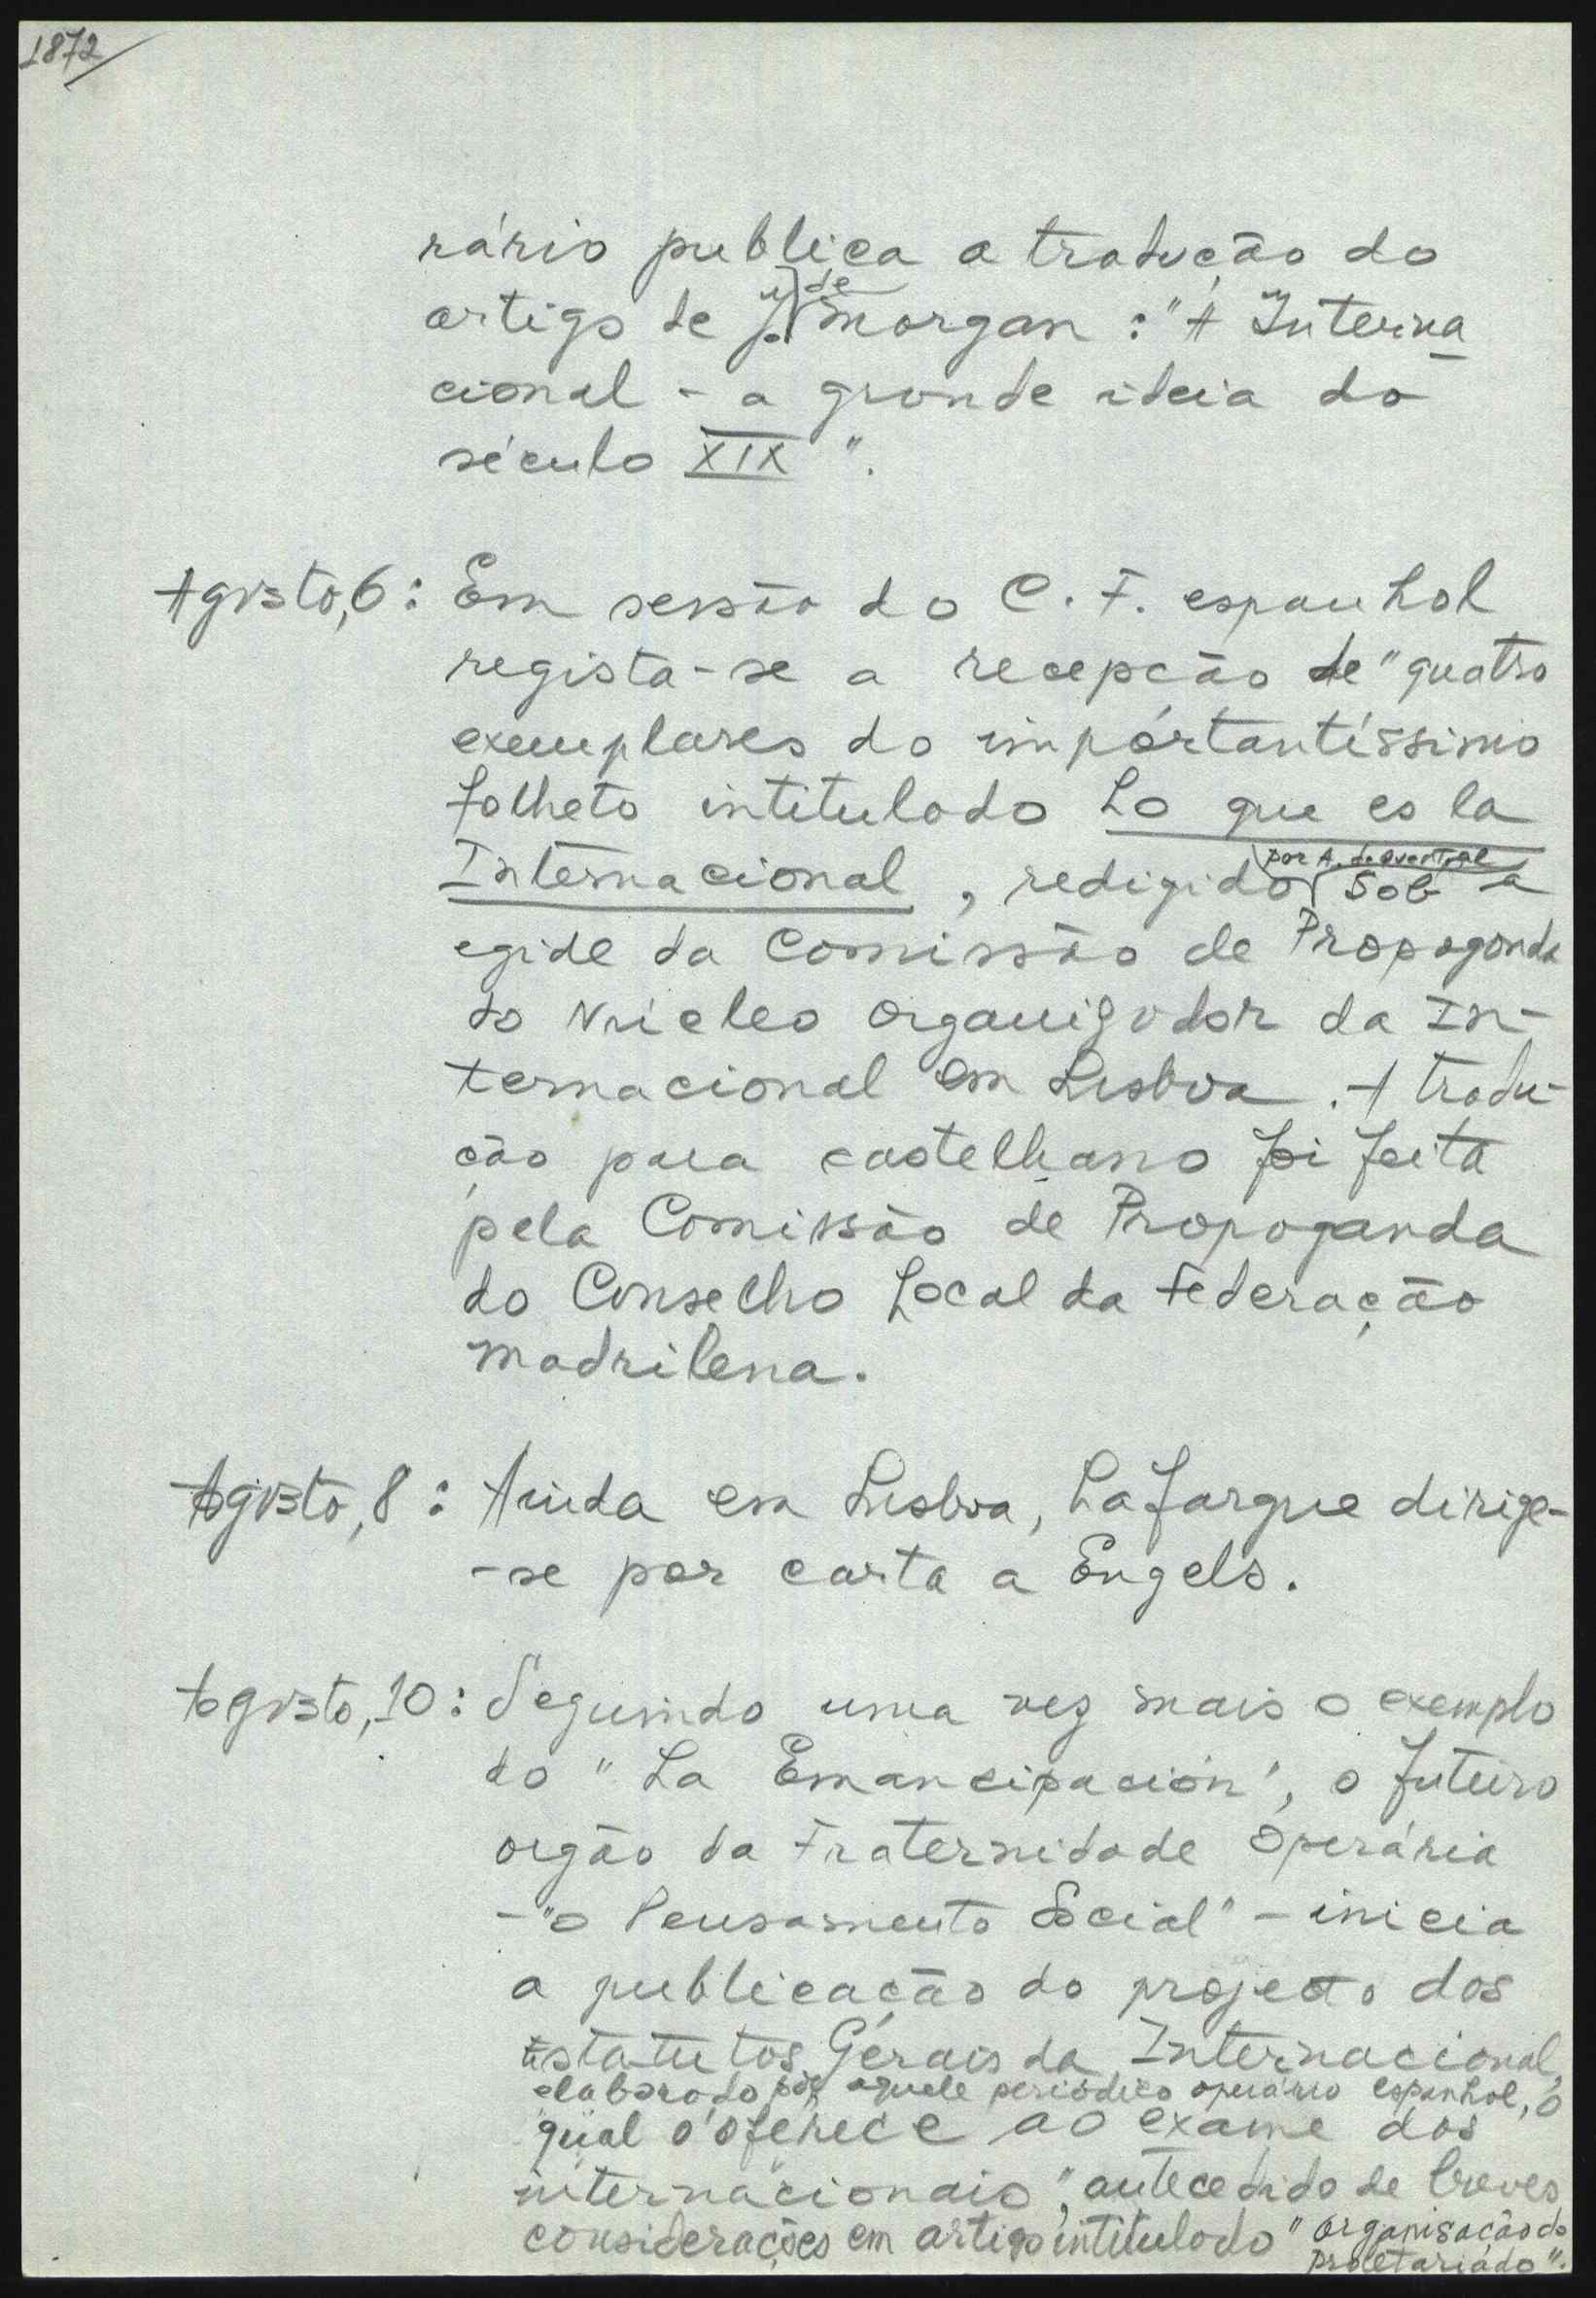 1872
rário publica a tradução do
artigo de J. de Morgan : "A Interna
cional - a grande ideia do
século XIX".
Agosto, 6 : Em sessão do C. F. espanhol
regista-se a recepção de "quatro
exemplares do importantíssimo
folheto intitulado Lo que es la
Internacional, redigido por A. de Quental sob a
egide da Comissão de Propaganda
do Núcleo organizador da In-
ternacional em Lisboa. A tradu-
ção para castelhano foi feita
pela Comissão de Propaganda
do Conselho Local da Federação
Madrilena.
Agosto, 8 : Ainda em Lisboa, Lafargue dirige-
-se por carta a Engels.
Agosto, 10 : Seguindo uma vez mais o exemplo
do "La Emancipación", o futuro
orgão da Fraternidade Operária
- "o Pensamento Social" - inicia
a publicação do projecto dos
Estatutos Gerais da Internacional,
elaborado por aquele periódico operário espanhol, o
qual o "oferece ao exame dos
internacionais", antecedido de breves
considerações em artigo intitulado "Organisação do
proletariado".